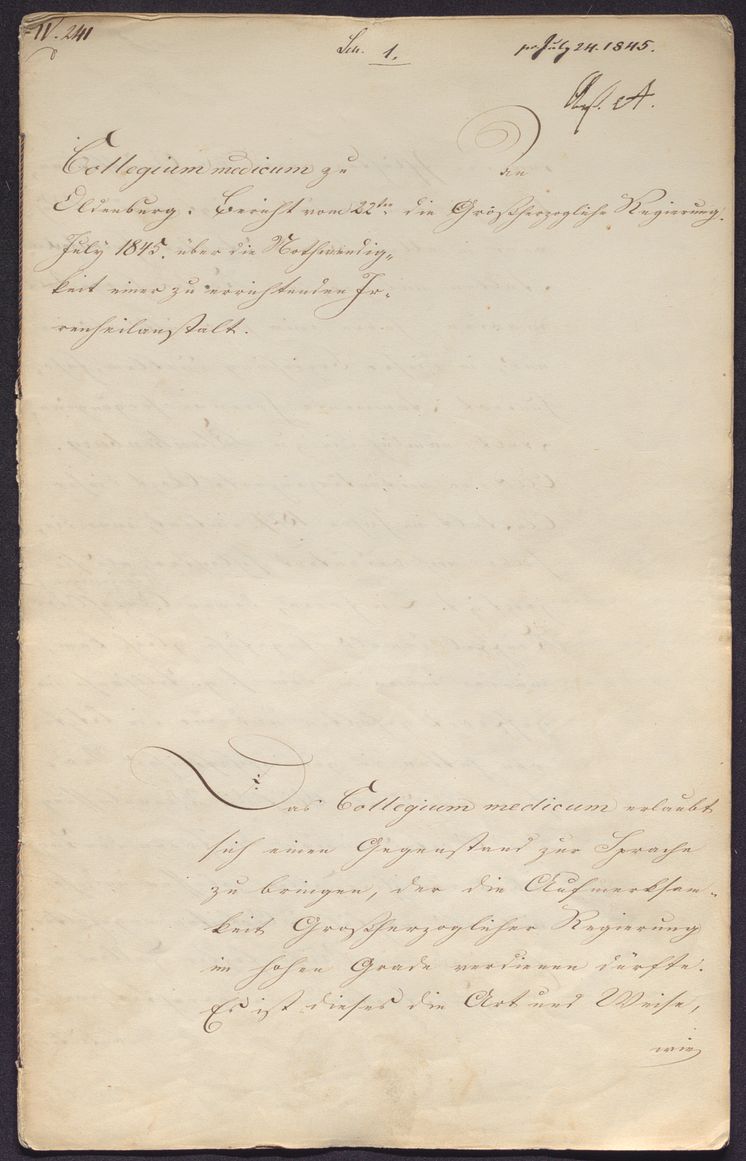 IV. 241
1.
pr. July 24. 1845.
A.
Collegium medicum zu
Oldenburg. Bericht vom 22ten
July 1845. über die Nothwendig„
keit einer zu errichtenden Ir„
renheilanstalt.
An
die Großherzogliche Regierung.
Das Collegium medicum erlaubt
sich einen Gegenstand zur Sprache
zu bringen, der die Aufmerksam„
keit Großherzoglicher Regierung
im hohen Grade verdienen dürfte.
Es ist dieses die Art und Weise,
wie